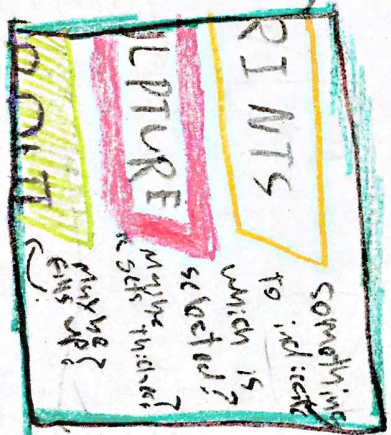 RINTS
something
to indicate
which is
selected?
ULPTURE
Maybe
it gets thicker?
Maybe
fills up?